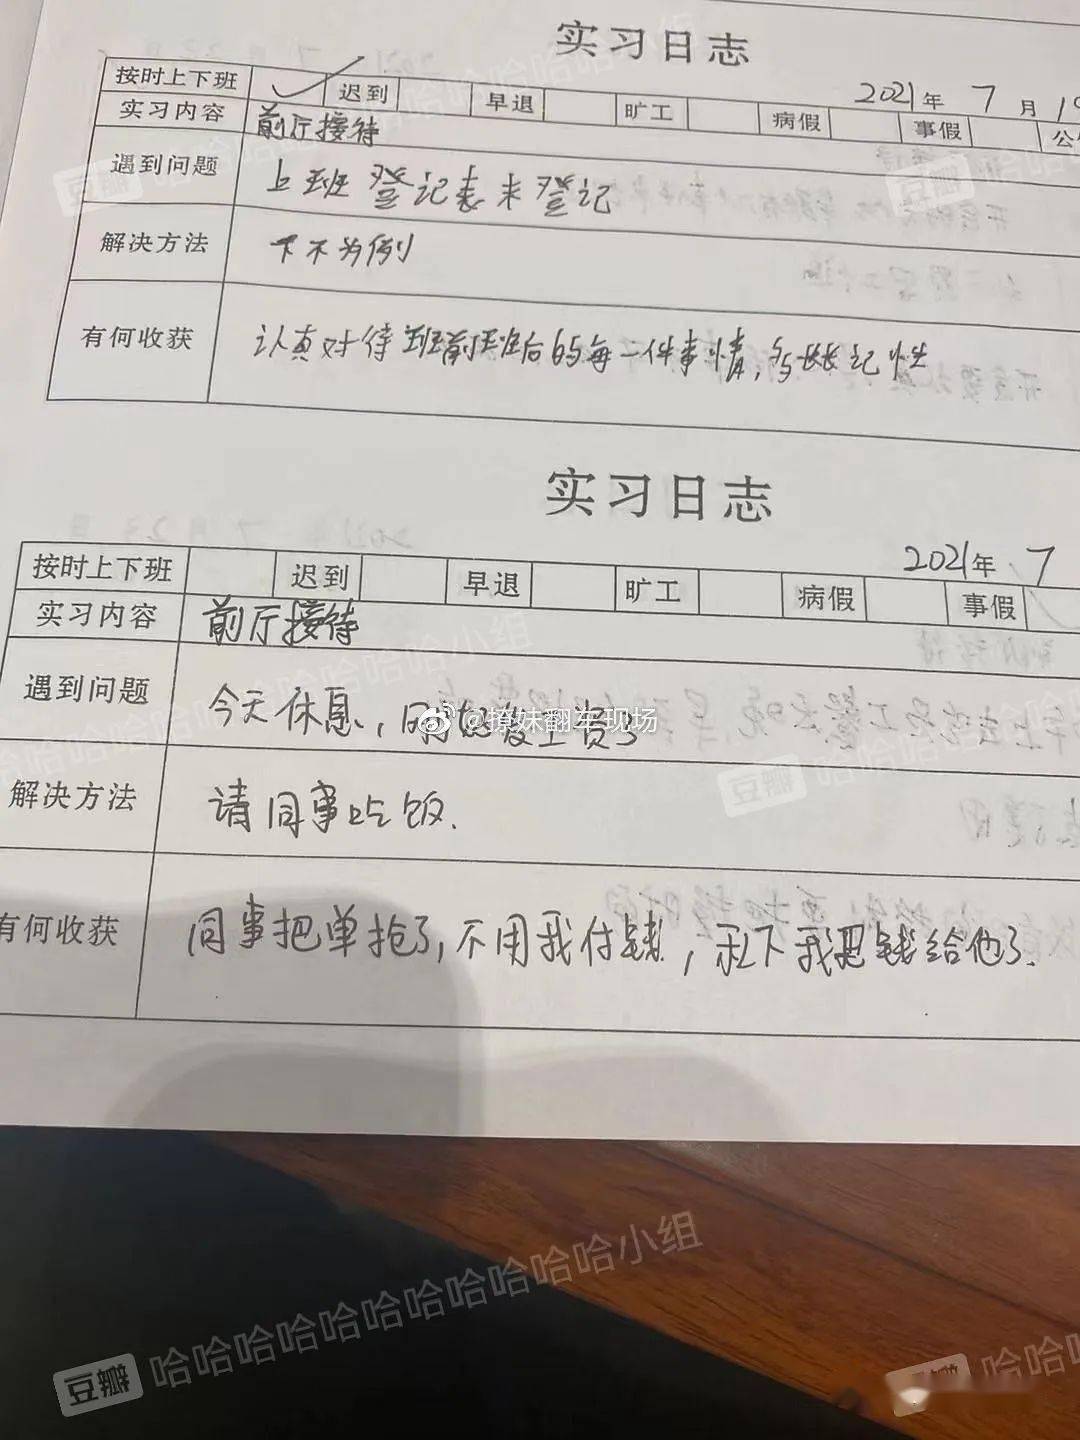 实习日志
2021年 7月19
按时上下班 ✓ 迟到 早退 旷工 病假 事假 公
实习内容 前厅接待
遇到问题 上班登记表未登记
解决方法 下不为例
有何收获 认真对待班前班后的每一件事情,多长记性
实习日志
2021年 7
按时上下班 迟到 早退 旷工 病假 事假
实习内容 前厅接待
遇到问题 今天休息,同时发工资了
@撩妹翻车现场
解决方法 请同事吃饭.
有何收获 同事把单抢了,不用我付钱,私下我把钱给他了.
豆瓣 哈哈哈哈哈哈哈哈哈哈小组
豆瓣 哈哈哈